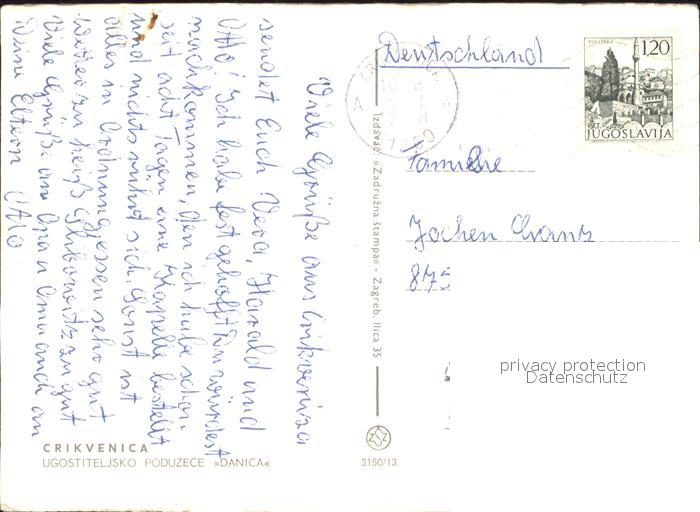 Viele Grüße aus Crikvenica
sendet Euch Vera, Harald und
Otto! Ich habe fest gehofft Du würdest
nachkommen, den ich habe schon
seit acht Tagen eine Kapelle bestellt
und nichts rührt sich. Sonst ist
alles in Ordnung, Essen sehr gut
Wetter zu heiß zu gut
Viele Grüße an Opa u Oma auch an
Deine Eltern Otto
CRIKVENICA
UGOSTITELJSKO PODUZEĆE »DANICA«
Izdavač: »Zadružna štampa« - Zagreb, Ilica 35
3150/13
Deutschland
POČITELJ
1,20
JUGOSLAVIJA
Familie
Jochen
875
privacy protection
Datenschutz